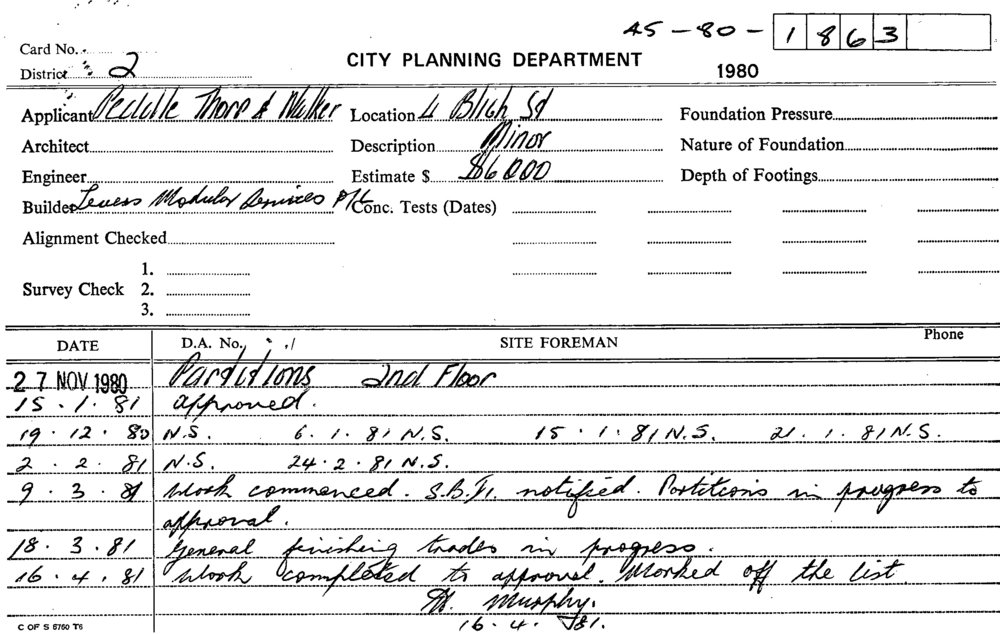 45 - 80 - 1863
Card No.
District 2
CITY PLANNING DEPARTMENT
1980
Applicant Peddle Thorp & Walker Location 4 Bligh St Foundation Pressure
Architect Description Minor Nature of Foundation
Engineer Estimate $ $6000 Depth of Footings
Builder Levers Modular Services P/L Conc. Tests (Dates)
Alignment Checked
1.
Survey Check 2.
3.
DATE D.A. No. SITE FOREMAN Phone
27 NOV 1980 Partitions 2nd Floor
15 . 1 . 81 approved.
19 . 12 . 80 N.S. 6 . 1 . 81 N.S. 15 . 1 . 81 N.S. 21 . 1 . 81 N.S.
2 . 2 . 81 N.S. 24 . 2 . 81 N.S.
9 . 3 . 81 Work commenced. notified. Partitions in progress to
approval.
18 . 3 . 81 General finishing trades in progress.
16 . 4 . 81 Work completed to approval. Marked off the list
M. Murphy.
16 . 4 . 81.
C OF S 6760 T6